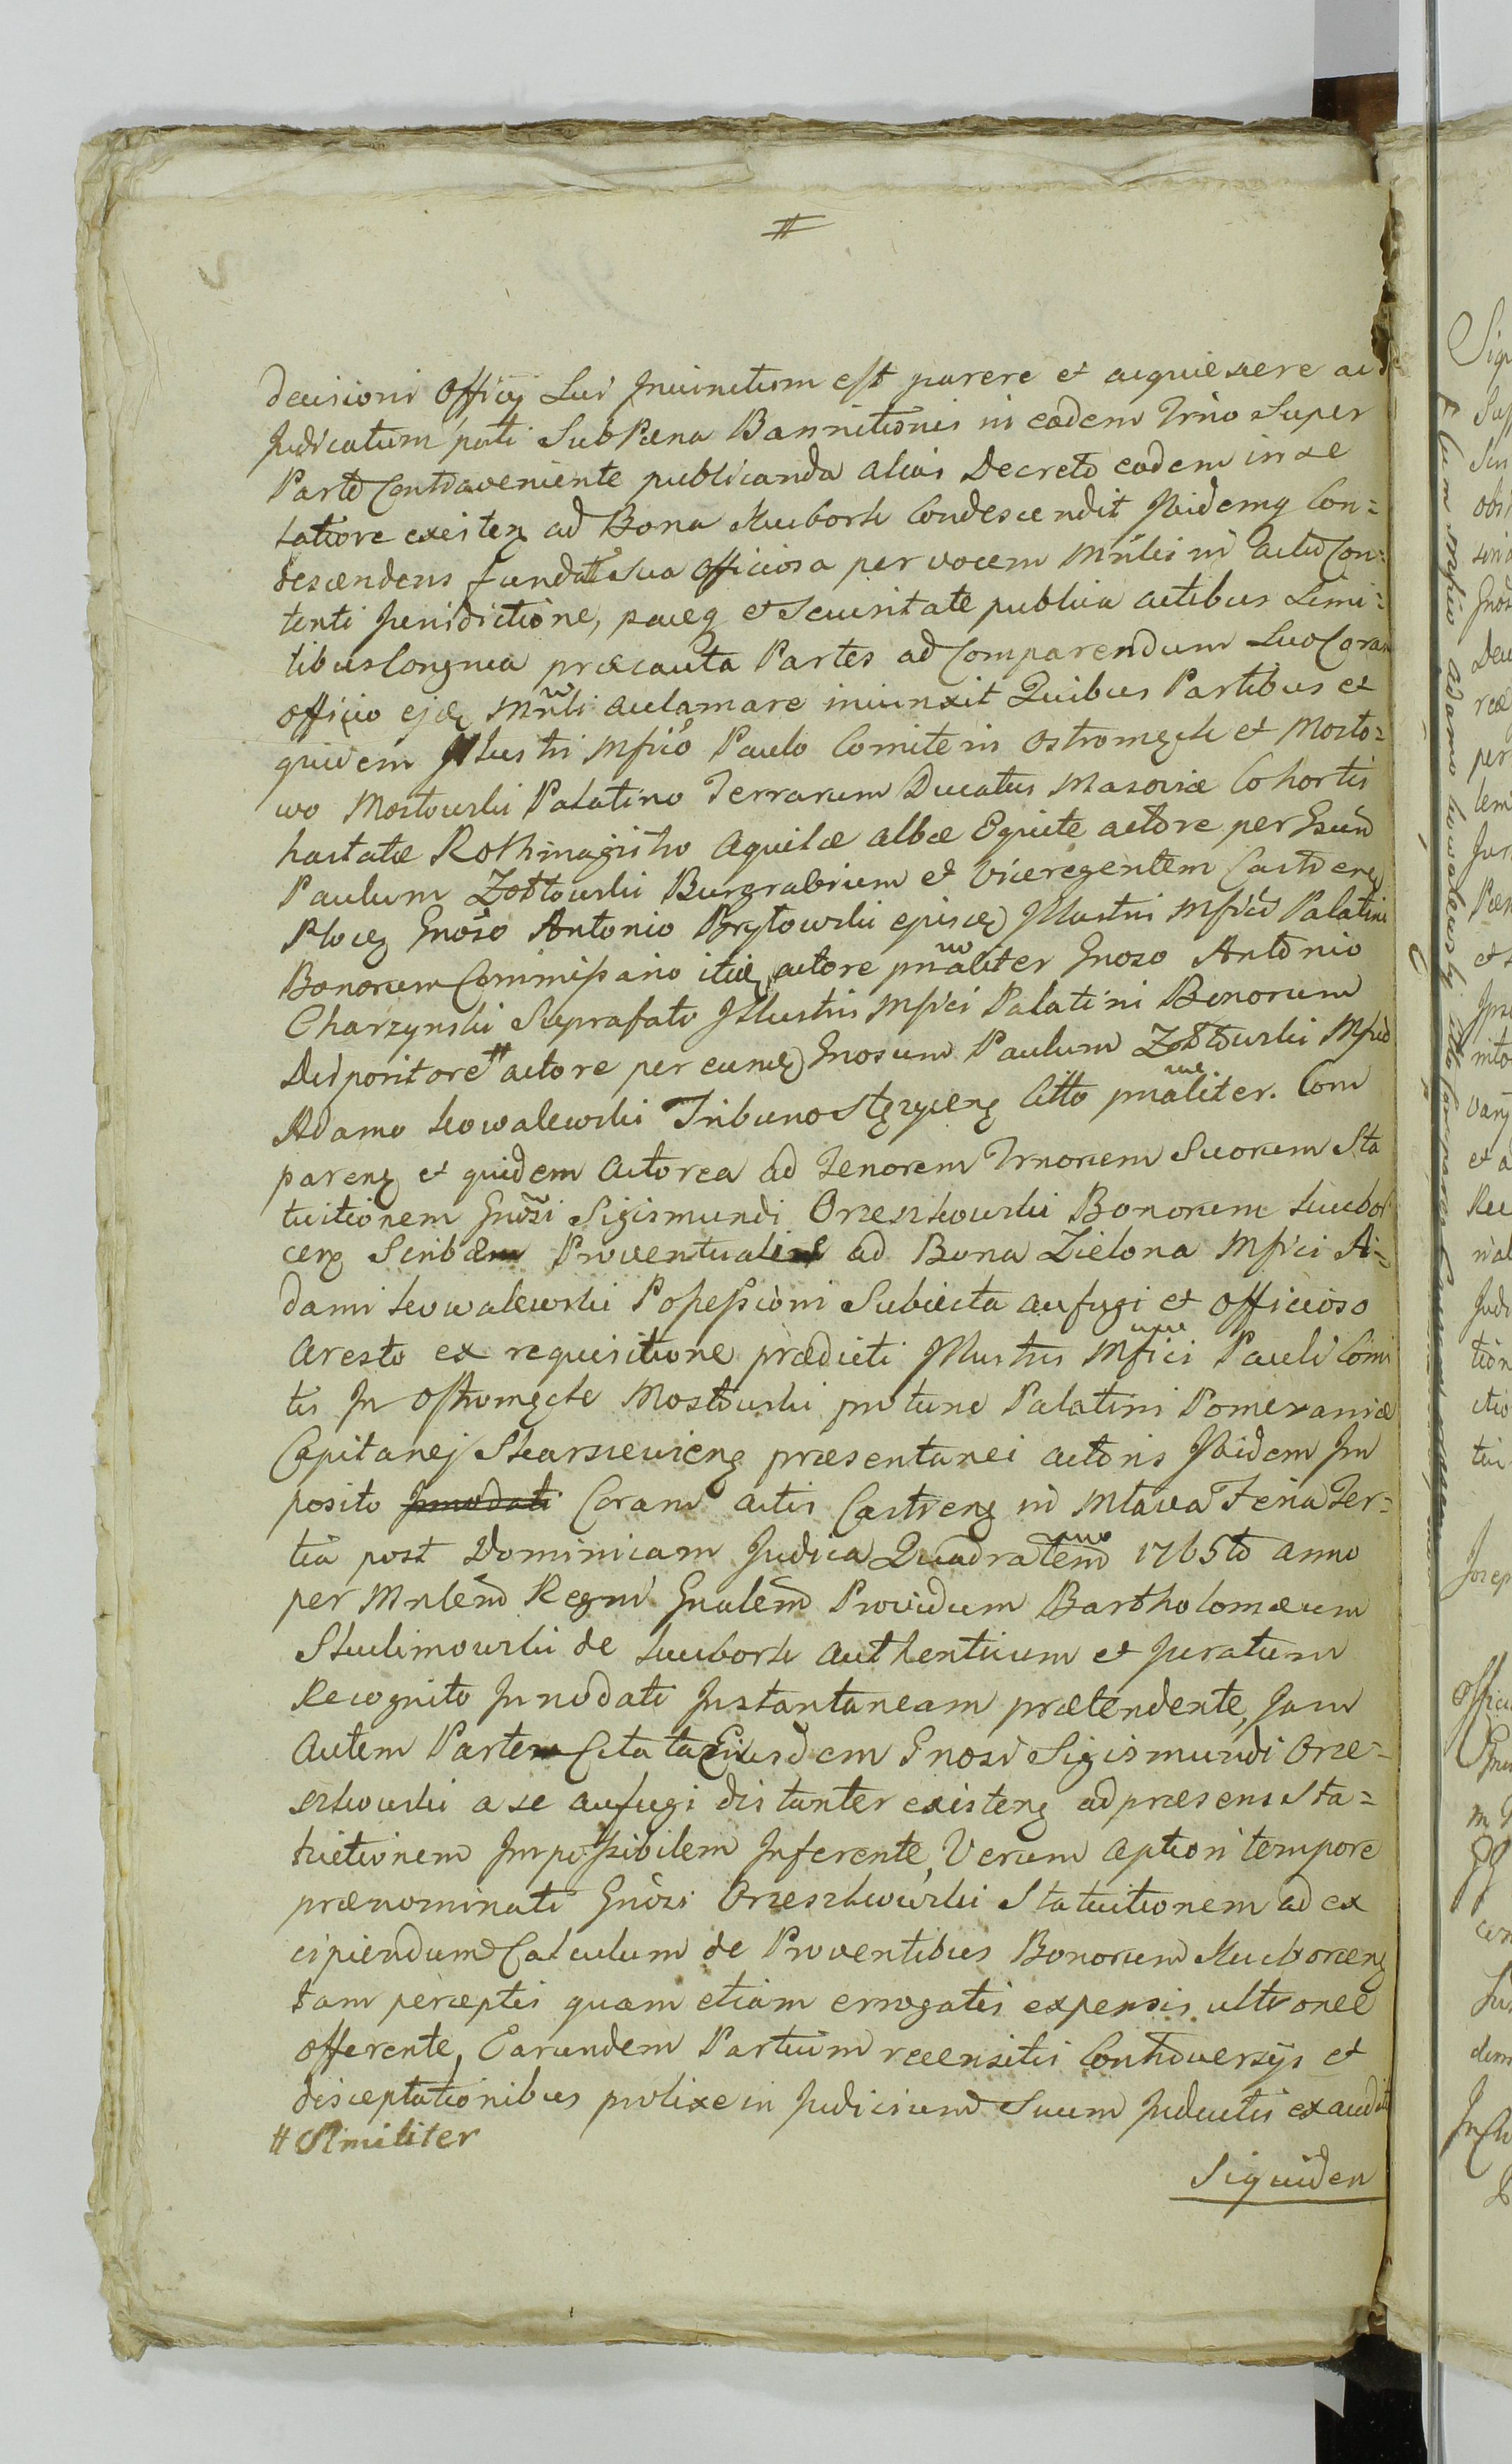 #
decisioni Officij Sui Iniunctum est parere et acquiescere ac
Judicatum pati Sub Pæna Bannitionis in eodem Trno Super
Parte Contraveniente publicanda alias Decreto eodem in se
latiore existen ad Bona Kucbork Condescendit Ibidemq Con=
descendens fundata Sua Officiosa per vocem Mnlis in actu Con=
tenti Jurisdictione, paceq et Securitate publica actibus Simi=
libus Congrua præcauta Partes ad Comparendum Suo Coram
officio ejdem Mnli aclamare iniunxit Quibus Partibus et
quidem Illustri Mfico Paulo Comite in Ostromęck et Mosto=
wo Mostowski Palatino Terrarum Ducatus Masoviæ Cohortis
hastatæ Rothmagistro Aquilæ albæ Equite actore per Gsum
Paulum Zołtowski Burgrabium et Viceregentem Castren
Plocen Gnoso Antonio Brytowski ejusd Illustris Mfici Palatini
Bonorum Commissario itid actore pnaliter Gnoso Antonio
Charzynski Suprafati Illustris Mfici Palatini Bonorum
Dispositore # actore per eund Gnosum Paulum Zołtowski Mfico
Adamo Kowalewski Tribuno Stęzycen Citto pnaliter. Com
paren et quidem Actorea ad Tenorem Trnorum Suorum Sta
tuitionem Gnosi Sigismundi Orzeszkowski Bonorum Kucbor
cen Scribæ Proventualis ad Bona Zielona Mfici A=
dami Kowalewski Possessioni Subiecta aufugi et Officioso
Aresto ex requisitione prædicti Illustris Mfici Pauli Comi
tis In Ostromęck Mostowski pro tunc Palatini Pomeraniæ
Capitanej Skarszewien præsentanei actoris Ibidem Im
posito Innodati Coram Actis Castren in Mlawa Feria Ter=
tia post Dominicam Judica Quadralem 1765to anno
per Mnlem Regni Gnalem Providum Bartholomæum
Skulimowski de Kucbork Authenticum et Juratum
Recognito Innodati Instantaneam prætendente, Jam
Autem Parte Citata Eiusdem Gnosi Sigismundi Orze=
szkowski a se aufugi distanter existen ad præsens Sta=
tuitionem Impossibilem Inferente, Verum aptiori tempore
prænominati Gnosi Orzeszkowski Statuitionem ad ex
cipiendum Calculum de Proventibus Bonorum Kucborcen
tam perceptis quam etiam errogatis expensis ultronee
offerente, Earundem Partium recensitis Controversijs et
disceptationibus prolixe in Judicium Suum Inductis exaudit
# Similiter
Siquidem